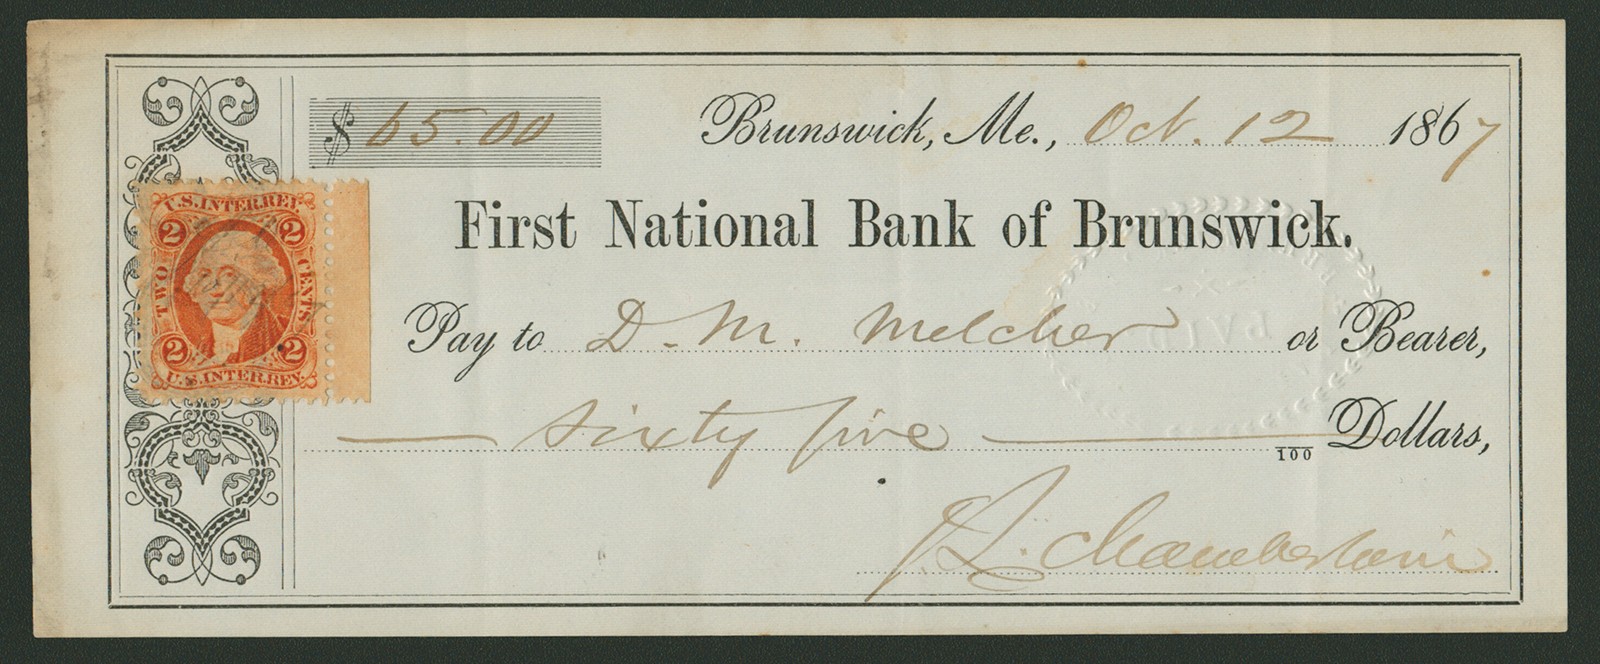 $ 65.00
Brunswick, Me., Oct. 12 1867
First National Bank of Brunswick.
U.S. INTER. REV.
2 2
TWO CENTS
2 2
U.S. INTER. REV.
Pay to D. M. Melcher or Bearer,
Sixty five 100 Dollars,
J. L. Chamberlain
PAID